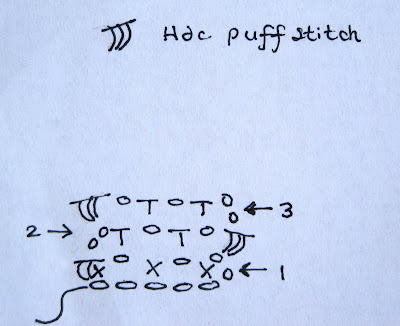 Hdc puff stitch
3
2
1